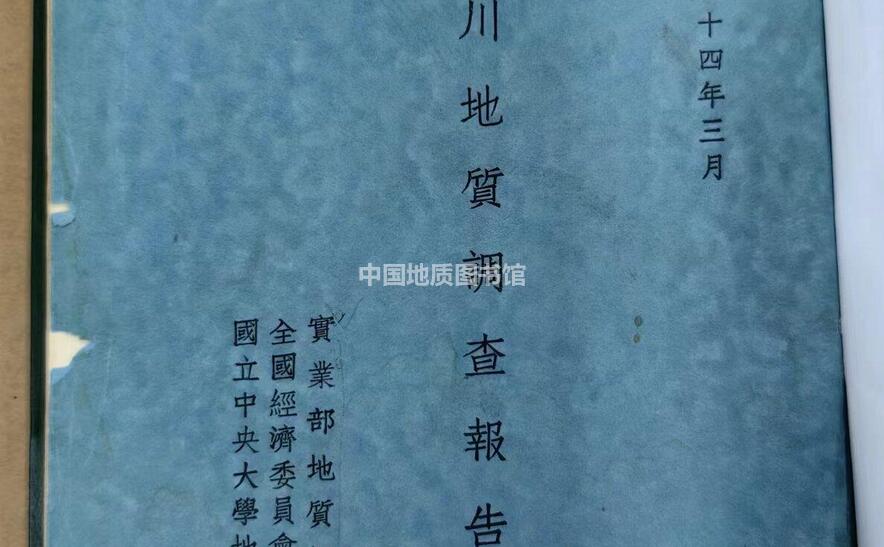 十四年三月
川地質調查報告
實業部地質
全國經濟委員會
國立中央大學地
中国地质图书馆